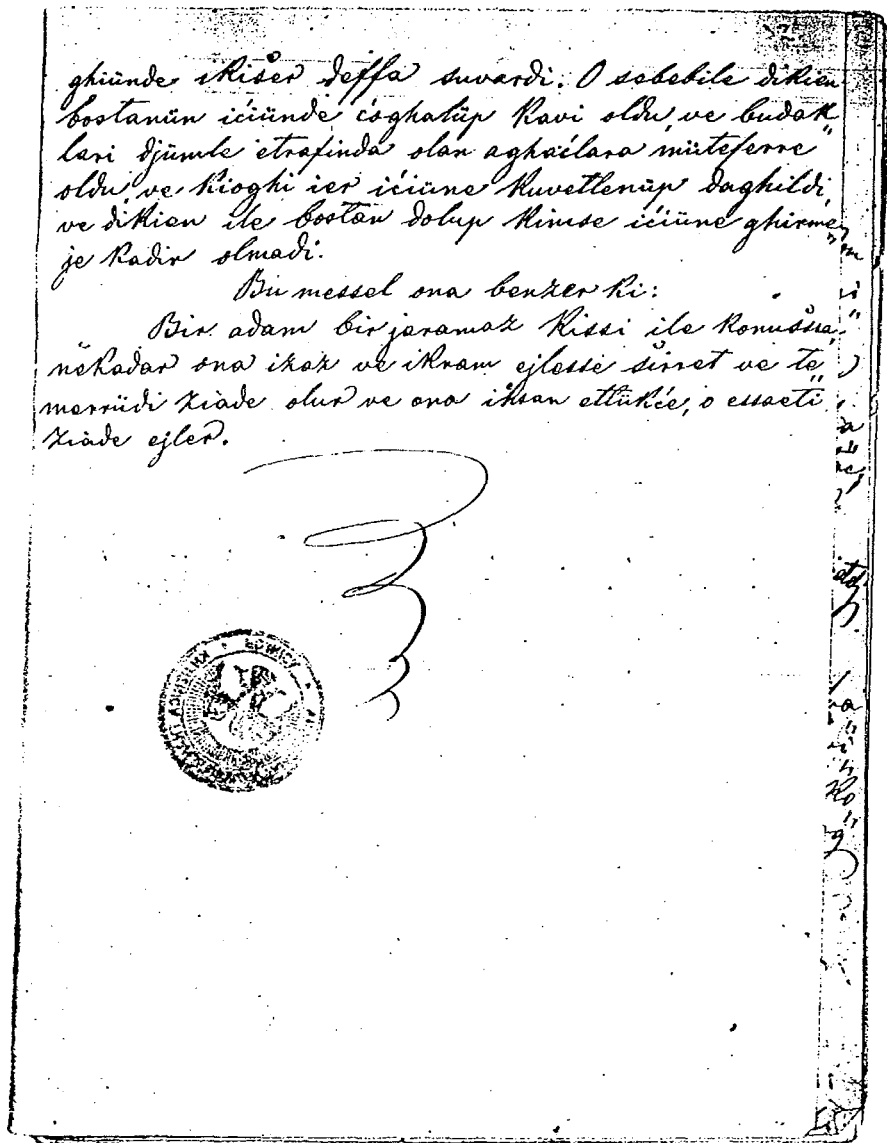 ghiünde ikišer deffa suvardi. O sebebile dikien
bostanün ićiünde ćoghalüp kavi oldu, ve budak
lari djümle etrafinda olan aghaćlara müteferre"
oldu, ve kioghi ier ićiüne kuvetlenüp daghildi,
ve dikien ile bostan dolup kimse ićiüne ghirme"
je kadir olmadi.
Bu messel ona benzer ki:
Bir adam bir jaramaz kissi ile konušsa,
nekadar ona izaz ve ikram ejlesse širret ve te"
merrüdi ziade olur ve ona ihsan ettükće, o essaeti
ziade ejler.